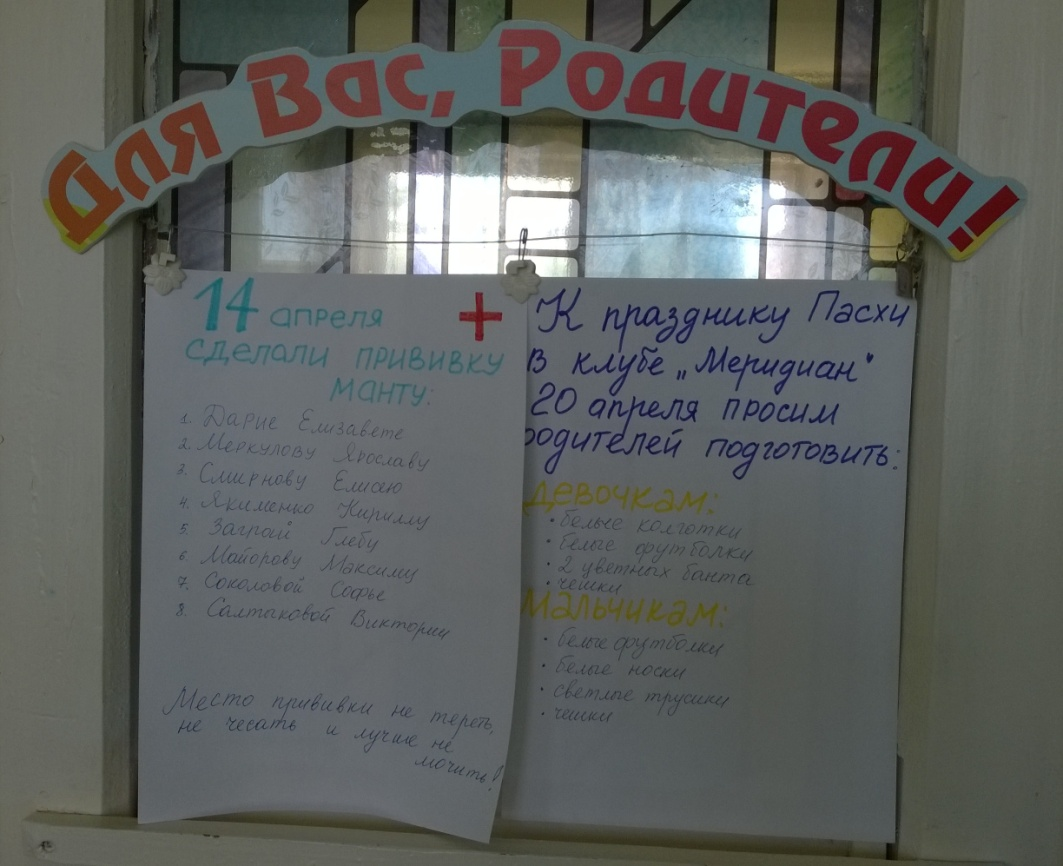 Для Вас, Родители!
14 апреля +
сделали прививку
манту:
1. Дарие Елизавете
2. Меркулову Ярославу
3. Смирнову Елисею
4. Якименко Кириллу
5. Заграй Глебу
6. Майорову Максиму
7. Соколовой Софье
8. Салтыковой Виктории
Место прививки не тереть,
не чесать и лучше не
мочить!
К празднику Пасхи
в клубе „Меридиан"
20 апреля просим
родителей подготовить:
девочкам:
• белые колготки
• белые футболки
• 2 цветных банта
• чешки
мальчикам:
• белые футболки
• белые носки
• светлые трусики
• чешки